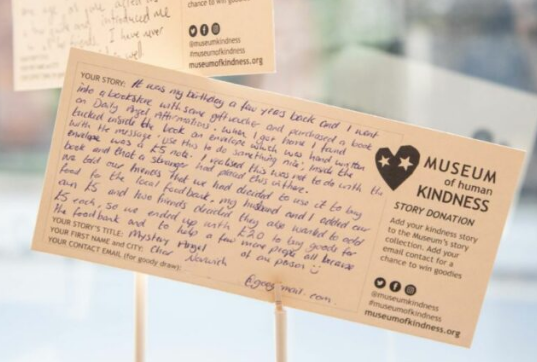 chance to win goodies
@museumkindness
#museumofkindness
museumofkindness.org
YOUR STORY: It was my birthday a few years back and I went
into a bookstore with some gift voucher and purchased a book
on Daily Angel Affirmations. When I got home I found
tucked inside the book an envelope which was hand written
with the message 'Use this to do something nice'. Inside the
envelope was a £5 note. I realised this was not to do with the
book and that a stranger had placed this in there.
We told our friends that we had decided to use it to buy
food for the local foodbank, my husband and I added our
own £5 and two friends decided they also wanted to add
£5 each, so we ended up with £20 to buy goods for
the foodbank and to help a few more people all because
of one person
YOUR STORY'S TITLE: Mystery Angel
YOUR FIRST NAME and CITY: Norwich
YOUR CONTACT EMAIL (for goody draw): mail.com
MUSEUM
of human
KINDNESS
STORY DONATION
Add your kindness story
to the Museum's story
collection. Add your
email contact for a
chance to win goodies
@museumkindness
#museumofkindness
museumofkindness.org